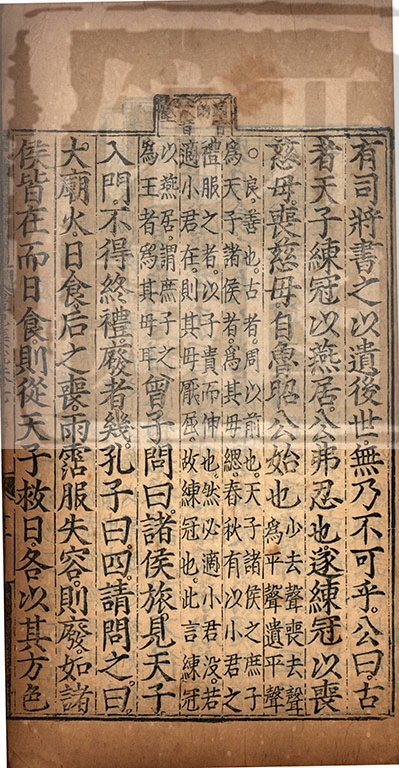 有司將書之以遺後世。無乃不可乎。公曰。古
者天子練冠以燕居。公弗忍也。遂練冠以喪
慈母。喪慈母。自魯昭公始也
少去聲喪去聲
為平聲遺平聲
○良。善也。古者。周以前也。天子諸侯之庶子
為天子諸侯者。為其母緦。春秋有以小君之
禮服之者。以子貴而伸也。然必適小君沒。若
適小君在。則其母厭屈。故練冠也。此言練冠
以燕居。謂庶子之
為王者為其母耳
曾子問曰。諸侯旅見天子
入門。不得終禮。廢者幾。孔子曰。四。請問之。曰
大廟火。日食。后之喪。雨霑服失容。則廢。如諸
侯皆在而日食。則從天子救日。各以其方色